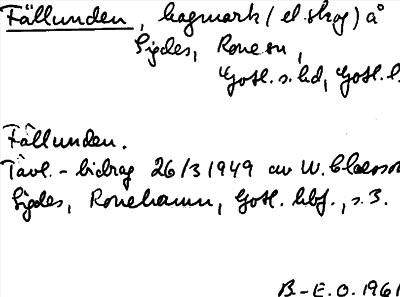 Fållunden, hagmark (el. skog) å
Sigdes, Rone sn,
Gotl. s. hd, Gotl. l.
Fållunden.
Tävl.-bidrag 26/3 1949 av W. Claesson
Sigdes, Ronehamn, Gotl. hbf., s. 3.
B.-E. O. 1961